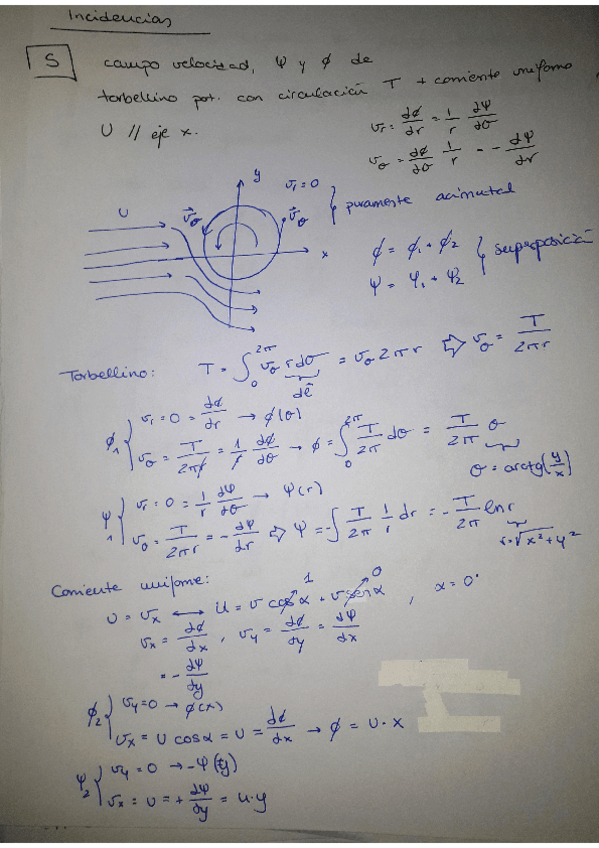 Incidencias
5
campo velocidad, ψ y ϕ de
torbellino pot. con circulación T + corriente uniforme
U // eje x.
vr = dϕ/dr = 1/r dψ/dθ
vθ = dϕ/dθ 1/r = - dψ/dr
y
vr = 0
U
v⃗θ
v⃗θ
} puramente acimutal
x
ϕ = ϕ1 + ϕ2
ψ = ψ1 + ψ2
} superposición
Torbellino: T = ∫₀^2π vθ r dθ = vθ 2πr ⇨ vθ = T/2πr
dℓ
ϕ1 { vr = 0 = dϕ/dr → ϕ(θ)
vθ = T/2πr = 1/r dϕ/dθ → ϕ = ∫₀^2π T/2π dθ = T/2π θ
θ = arctg(y/x)
ψ1 { vr = 0 = 1/r dψ/dθ → ψ(r)
vθ = T/2πr = - dψ/dr ⇨ ψ = -∫ T/2π 1/r dr = - T/2π ln r
r = √x²+y²
Corriente uniforme:
U = vx ⟷ U = v cos α + v sen α , α = 0°
1
0
vx = dϕ/dx , vy = dϕ/dy = dψ/dx
= - dψ/dy
ϕ2 { vy = 0 → ϕ(x)
vx = U cos α = U = dϕ/dx → ϕ = U · x
ψ2 { vy = 0 → -ψ(y)
vx = U = + dψ/dy = u · y